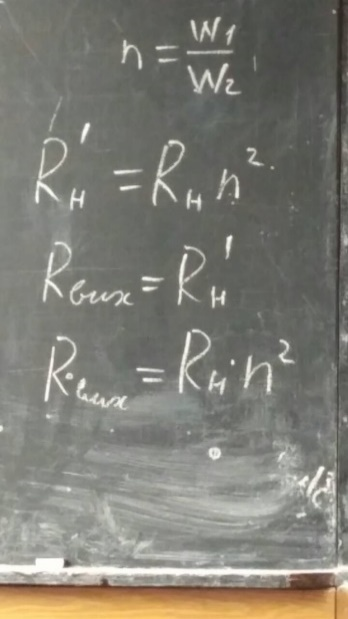 n = W₁/W₂
R'н = Rн n²
Rвих = R'н
Rвих = Rн · n²